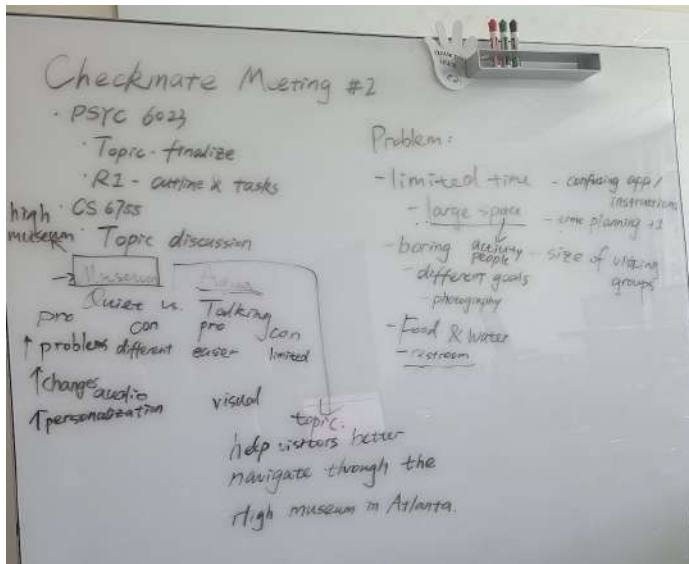 Checkmate Meeting #2
· PSYC 6023
· Topic - finalize
· R1 - outline & tasks
· CS 6755
high museum
· Topic discussion
→ Museum
Quiet vs. Talking
pro con pro con
↑ problems different easier limited
↑ changes audio
↑ personalization visual
topic:
help visitors better
navigate through the
High museum in Atlanta.
Problem:
- limited time - confusing app / instructions
- large space - time planning +1
- boring activity people - size of visiting groups
- different goals
- photography
- Food & water
- restroom